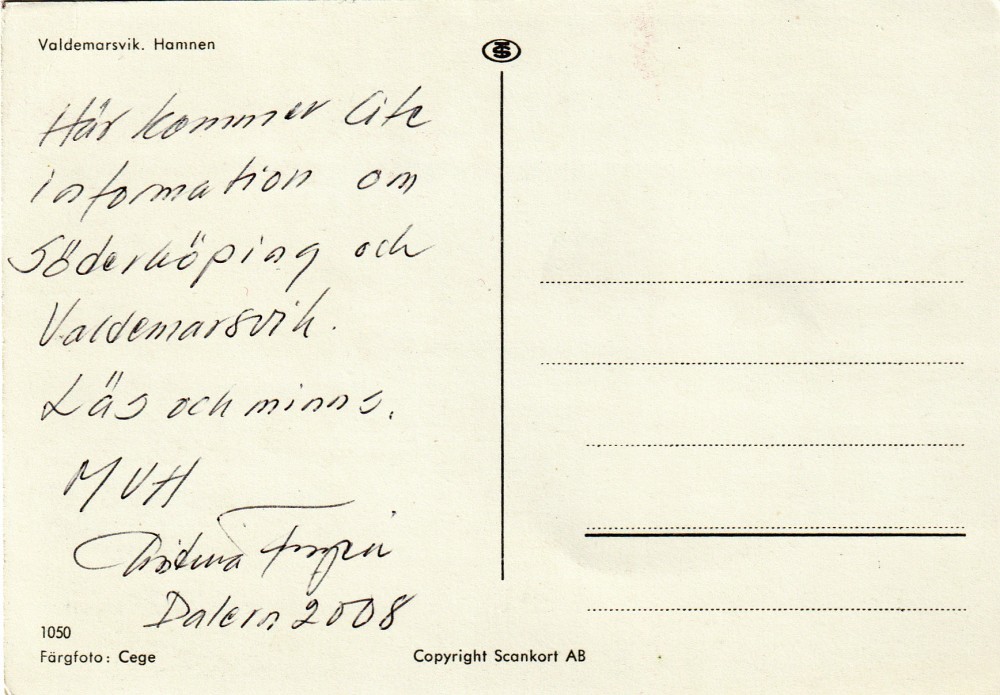 Valdemarsvik. Hamnen
Här kommer lite
information om
Söderköping och
Valdemarsvik.
Läs och minns.
MVH
Christina
Dalem 2008
1050
Färgfoto: Cege
Copyright Scankort AB